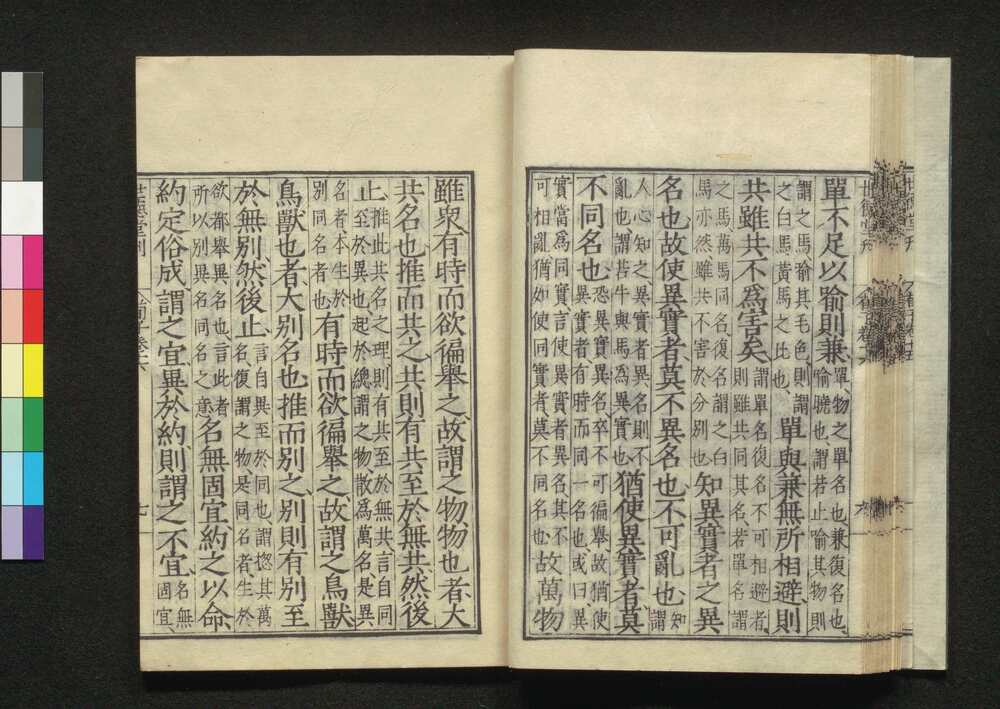 單不足以喻則兼單物之單名也兼復名也
喻曉也謂若止喻其物則
謂之馬喻其毛色則謂
之白馬黃馬之比也單與兼無所相避則
共雖共不爲害矣謂單名復名不可相避者
則雖共同其名若單名謂
之馬萬馬同名復名謂之白
馬亦然雖共不害於分別也知異實者之異
名也故使異實者莫不異名也不可亂也知
謂
人心知之異實者異名則不
亂也謂若牛與馬爲異實也猶使異實者莫
不同名也恐異實異名卒不可徧舉故猶使
異實者有時而同一名也或曰異
實當爲同實言使異實者異名其不
可相亂猶如使同實者莫不同名也故萬物
雖衆有時而欲徧舉之故謂之物物也者大
共名也推而共之共則有共至於無共然後
止推此共名之理則有共至於無共言自同
至於異也起於總謂之物散爲萬名是異
名者本生於
別同名者也有時而欲徧舉之故謂之鳥獸
鳥獸也者大別名也推而別之別則有別至
於無別然後止言自異至於同也謂揔其萬
名復謂之物是同名者生於
欲都舉異名也言此者
所以別異名同名之意名無固宜約之以命
約定俗成謂之宜異於約則謂之不宜名無
固宜
世德堂刊
荀子卷十六
七